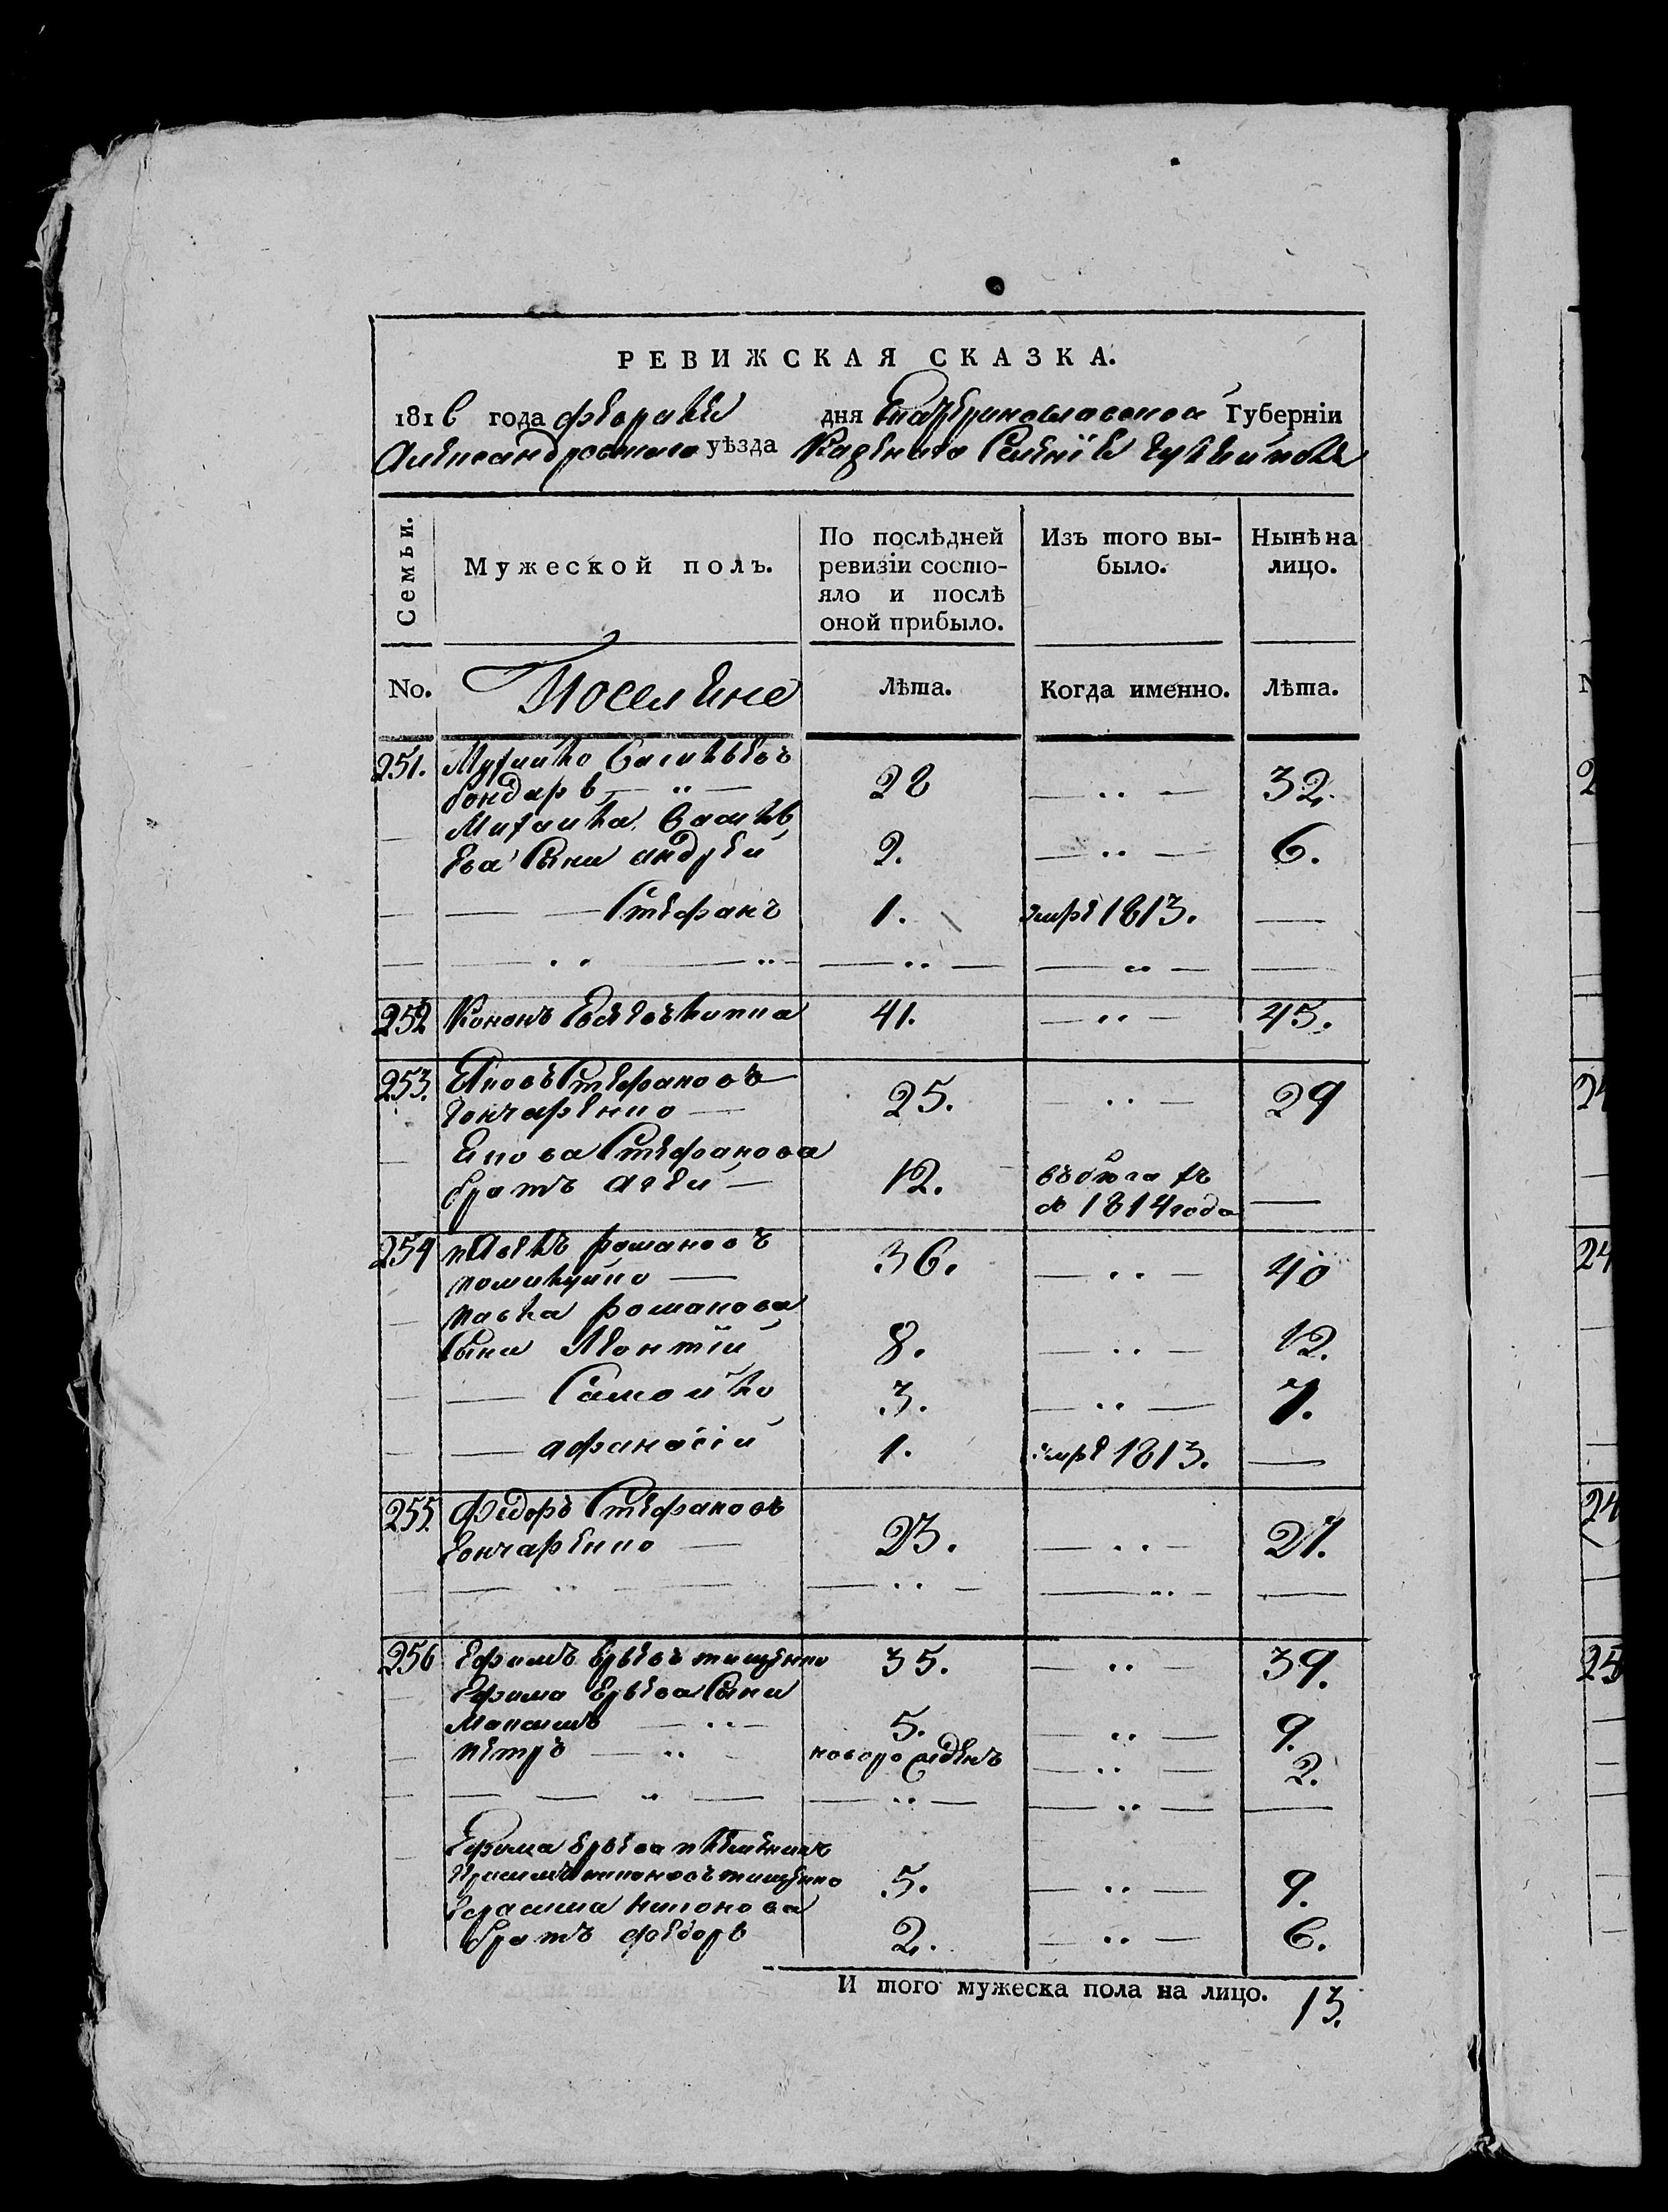 РЕВИЖСКАЯ СКАЗКА.
1816 года февраля дня Екатеринославской Губерніи
Александровскаго уѣзда Казеннаго Селенія Гуляйполя
Семьи.
Мужеской полъ.
По послѣдней
ревизіи состо-
яло и послѣ
оной прибыло.
Изъ того вы-
было.
Нынѣ на
лицо.
No.
Поселяне
Лѣта.
Когда именно.
Лѣта.
251. Михайло Васильевъ
бондарь 28 32.
Михайла Василь
ева Сыни андрей 2. 6.
Стефанъ 1. умре 1813.
252 Кононъ 41. 45.
253. Стефановъ
Гончаренко 25. 29
Стефанова
братъ 12. въ бѣгахъ
съ 1814 года
254 павелъ романовъ
36. 40
павла романова
Сыни Леонтій 8. 12.
Самойло 3. 7.
афанасій 1. умре 1813.
255. Федоръ Стефановъ
Гончаренко 23. 27.
256 Ефимъ тищенко 35. 39.
Ефима Сыни
Максимъ 5. 9.
петръ новорожденъ 2.
Ефима племенникъ
тищенко 5. 9.
Герасима
братъ федоръ 2. 6.
И того мужеска пола на лицо. 13.